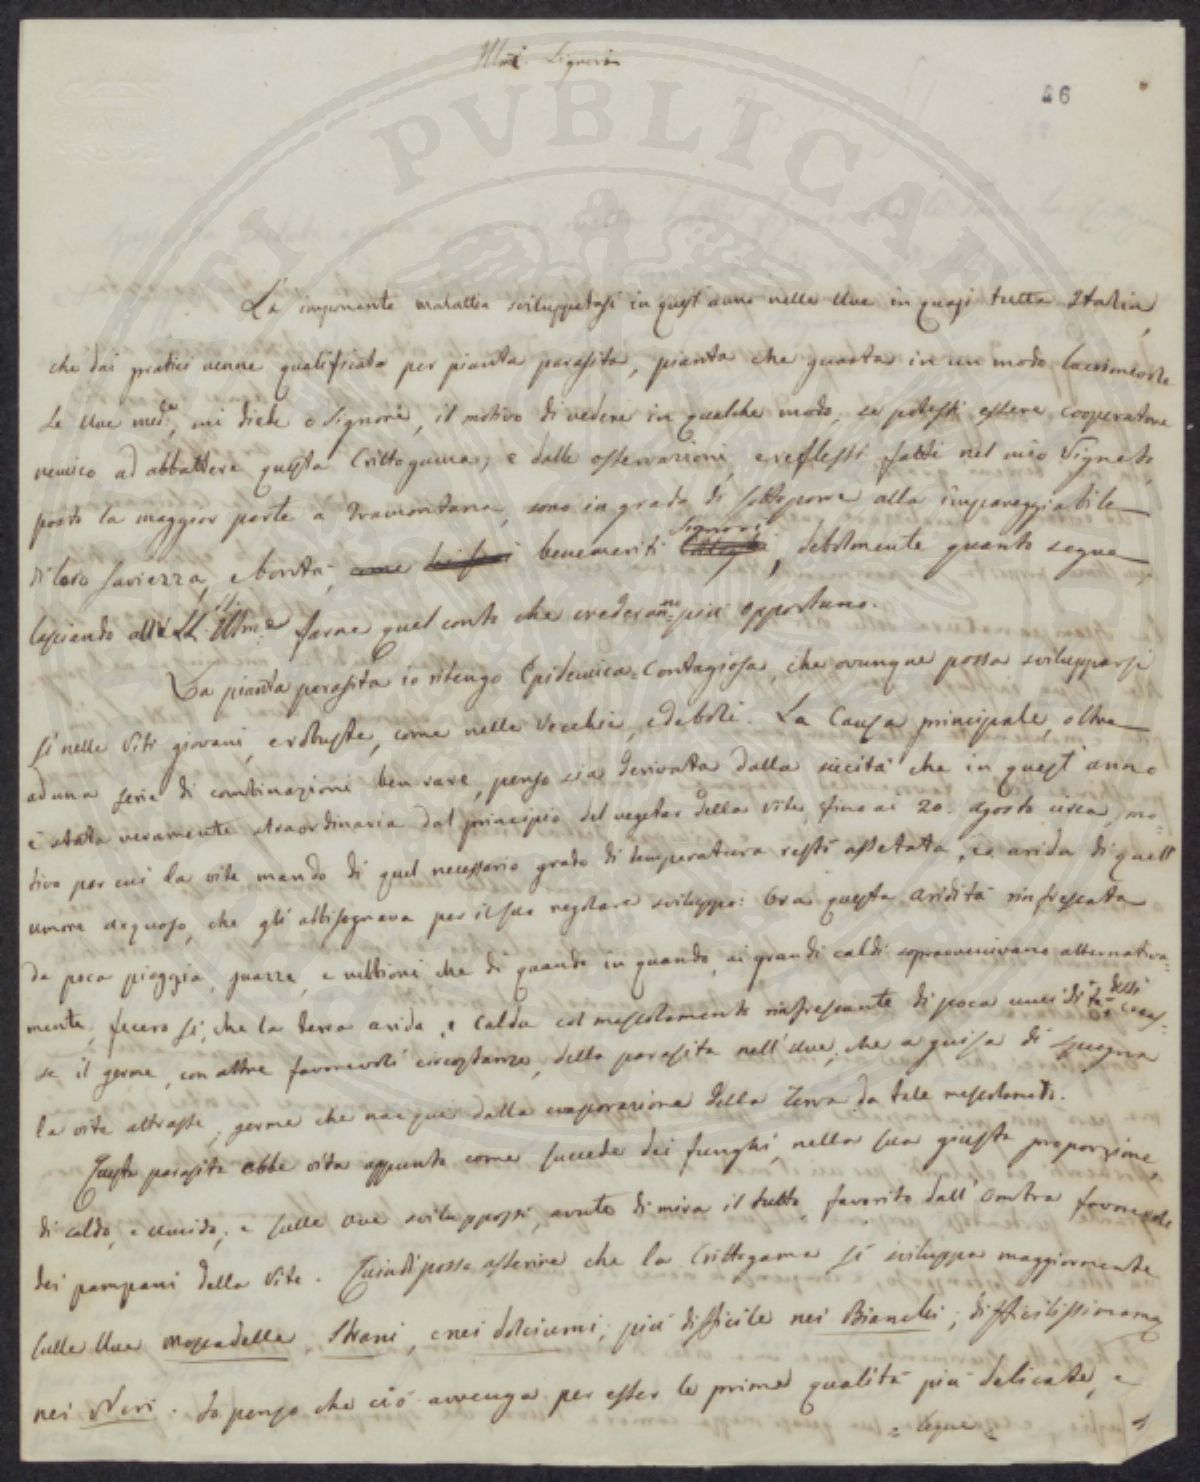 Illmi. Signori
46
La imponente malattia sviluppatasi in quest'anno nelle Uve in quasi tutta Italia,
che dai pratici venne qualificata per pianta parasita, pianta che guasta in un modo lacrimevole
le Uve med.e, mi diede o Signori, il motivo di vedere in qualche modo, se potessi essere cooperatore
nemico ad abbattere questa Crittogama, e dalle osservazioni, e reflessi fatti nel mio Vigneto
posto la maggior parte a tramontana, sono in grado di sottoporre alla impareggiabile
di loro saviezza, e bontà, benemeriti Signori, debolmente quanto segue
lasciando alle LL. Illme. farne quel conto che crederanno più opportuno.
La pianta parasita io ritengo Epidemica-Contagiosa, che ovunque possa svilupparsi
sì nelle Viti giovani, e robuste, come nelle Vecchie, e deboli. La Causa principale, oltre
ad una serie di combinazioni ben rare, penso sia derivata dalla siccità che in quest'anno
è stata veramente straordinaria dal principio del vegetar della Vite fino ai 20. agosto circa, mo-
tivo per cui la vite mancando di quel necessario grado di temperatura restò assetata, ed arida di quell'
umore acquoso, che gli abbisognava per il suo regolare sviluppo: Ora questa aridità rinfrescata
da poca pioggia, guazze, e nebbioni, che di quando in quando, ai grandi caldi sopravvenivano alternativa-
mente, fecero sì, che la terra arida, e calda col mescolamento rinfrescante di poca umidità desse
se il germe, con altre favorevoli circostanze, della parasita nell'Uve, che a guisa di spugna
la vite attrasse, germe che nacque dalla evaporazione della Terra da tale mescolamento.
Questa parasita ebbe vita appunto come succede dei funghi, nella sua giusta proporzione,
di caldo, e umido, e sulle Uve sviluppossi, avuto di mira il tutto, favorito dall'ombra favorevole
dei pampani della Vite. Quindi posso asserire che la Crittogama si sviluppa maggiormente
sulle Uve Moscadelle, Strani, e nei dolciumi, più difficile nei Bianchi, difficilissima
nei Neri. Io penso che ciò avvenga per esser le prime qualità più delicate, e
= segue =